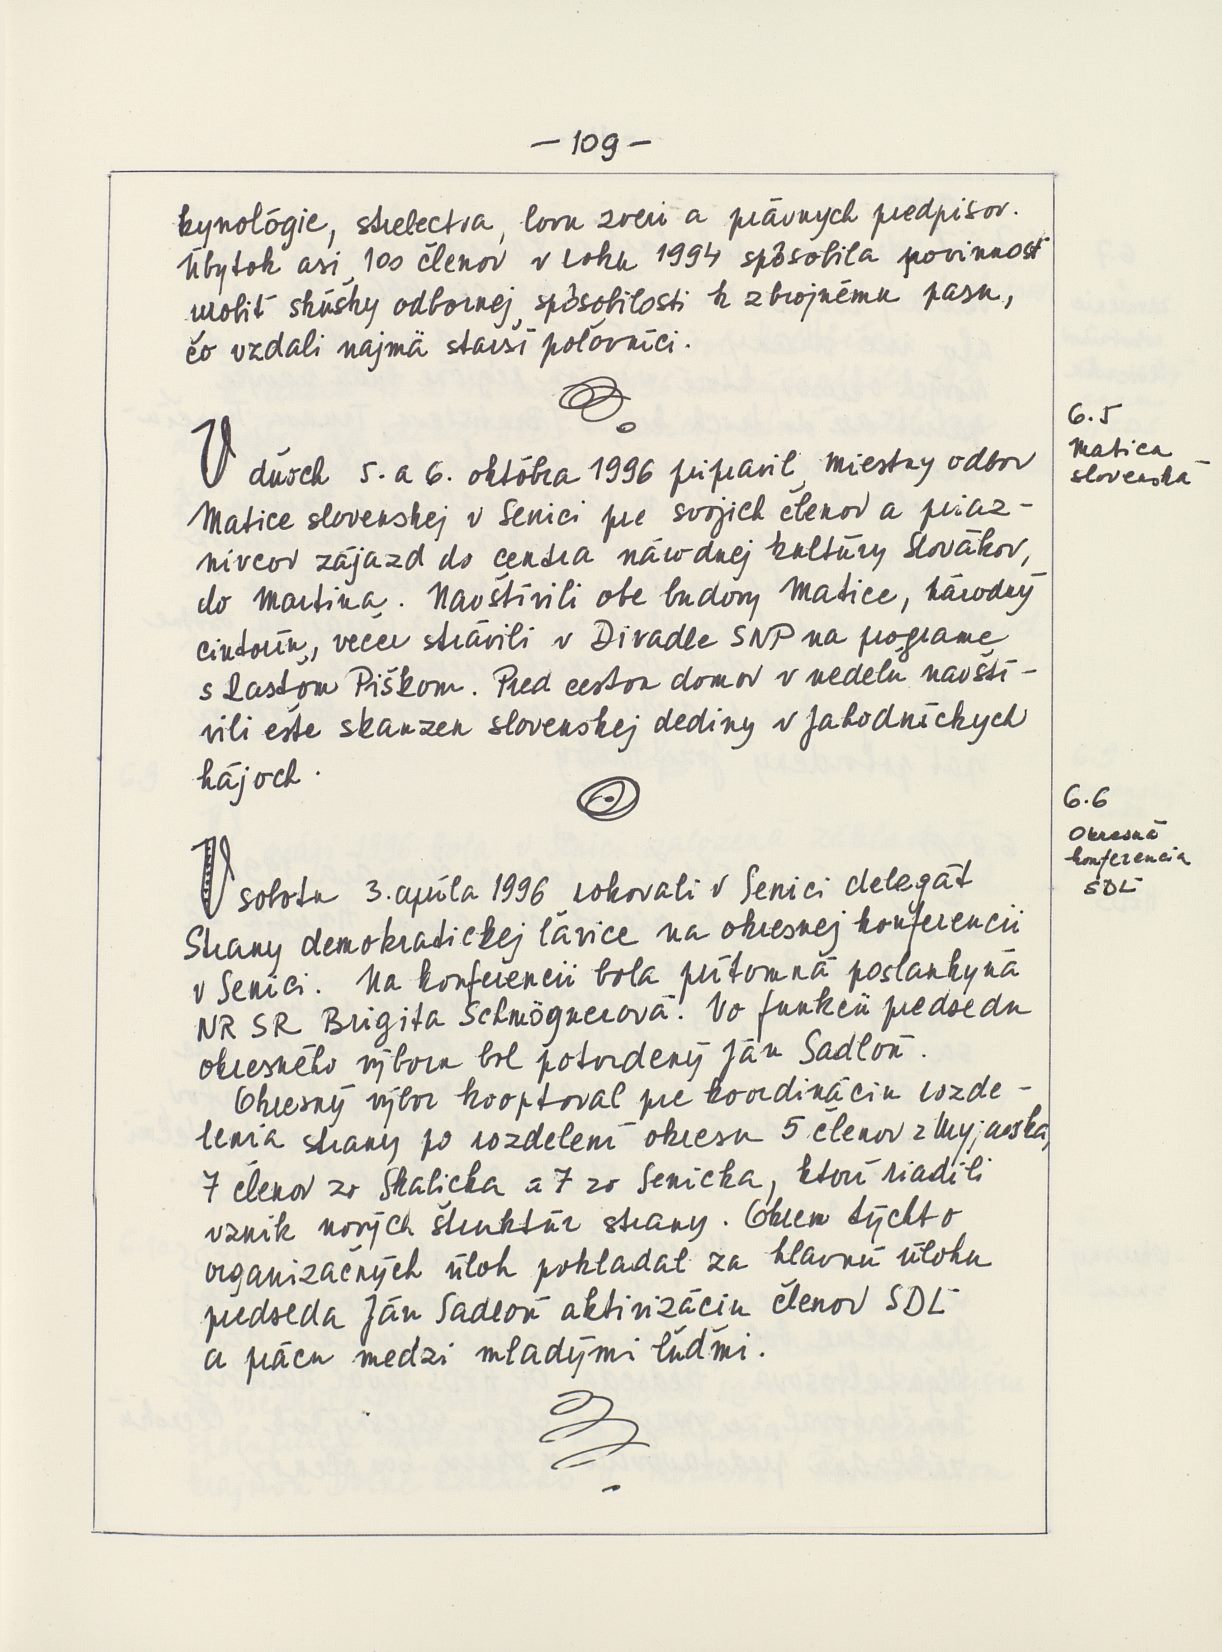 — 109 —
kynológie, strelectva, lovu zveri a právnych predpisov.
Úbytok asi 100 členov v roku 1994 spôsobila povinnosť
urobiť skúšky odbornej spôsobilosti k zbrojnému pasu,
čo vzdali najmä starší poľovníci.
6.5
Matica
slovenská
V dňoch 5. a 6. októbra 1996 pripravil miestny odbor
Matice slovenskej v Senici pre svojich členov a priaz-
nivcov zájazd do centra národnej kultúry Slovákov,
do Martina. Navštívili obe budovy Matice, národný
cintorín, večer strávili v Divadle SNP na programe
s Rasťom Piškom. Pred cestou domov v nedeľu navští-
vili ešte skanzen slovenskej dediny v Jahodníckych
hájoch.
6.6
Okresná
konferencia
SDĽ
V sobotu 3. apríla 1996 rokovali v Senici delegát
Strany demokratickej ľavice na okresnej konferencii
v Senici. Na konferencii bola prítomná poslankyňa
NR SR Brigita Schmögnerová. Vo funkcii predsedu
okresného výboru bol potvrdený Ján Sadloň.
Okresný výbor kooptoval pre koordináciu rozde-
lenia strany po rozdelení okresu 5 členov z Myjavska,
7 členov zo Skalicka a 7 zo Senicka, ktorí riadili
vznik nových štruktúr strany. Okrem týchto
organizačných úloh pokladal za hlavnú úlohu
predseda Ján Sadloň aktivizáciu členov SDĽ
a prácu medzi mladými ľuďmi.